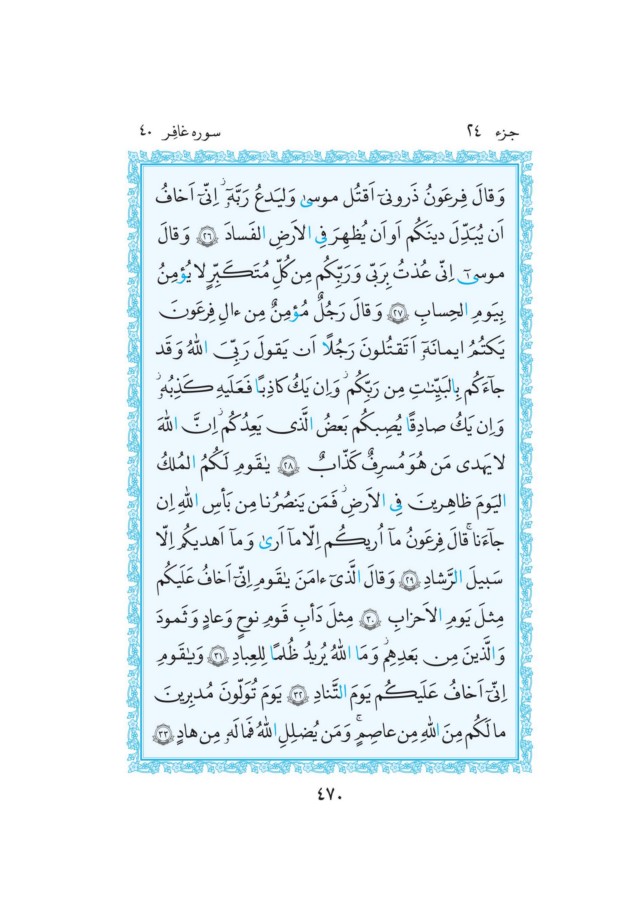 جزء ٢٤
سوره غافِر ٤٠
وَقالَ فِرعَونُ ذَرونىٓ اَقتُل موسىٰ وَليَدعُ رَبَّهٓۥ ۖ اِنّىٓ اَخافُ
اَن يُبَدِّلَ دينَكُم اَو اَن يُظهِرَ فِى الاَرضِ الفَسادَ ﴿٢٦﴾ وَقالَ
موسىٰٓ اِنّى عُذتُ بِرَبّى وَرَبِّكُم مِن كُلِّ مُتَكَبِّرٍ لا يُؤمِنُ
بِيَومِ الحِسابِ ﴿٢٧﴾ وَقالَ رَجُلٌ مُؤمِنٌ مِن ءالِ فِرعَونَ
يَكتُمُ ايمانَهٓۥ اَتَقتُلونَ رَجُلًا اَن يَقولَ رَبِّىَ اللّٰهُ وَقَد
جآءَكُم بِالبَيِّنٰتِ مِن رَبِّكُم ۖ وَاِن يَكُ كاذِبًا فَعَلَيهِ كَذِبُهۥ ۖ
وَاِن يَكُ صادِقًا يُصِبكُم بَعضُ الَّذى يَعِدُكُم ۖ اِنَّ اللّٰهَ
لا يَهدى مَن هُوَ مُسرِفٌ كَذّابٌ ﴿٢٨﴾ يٰقَومِ لَكُمُ المُلكُ
اليَومَ ظاهِرينَ فِى الاَرضِ ۖ فَمَن يَنصُرُنا مِن بَأسِ اللّٰهِ اِن
جآءَنا ۚ قالَ فِرعَونُ مآ اُريكُم اِلّا مآ اَرىٰ وَمآ اَهديكُم اِلّا
سَبيلَ الرَّشادِ ﴿٢٩﴾ وَقالَ الَّذىٓ ءامَنَ يٰقَومِ اِنّىٓ اَخافُ عَلَيكُم
مِثلَ يَومِ الاَحزابِ ﴿٣٠﴾ مِثلَ دَأبِ قَومِ نوحٍ وَعادٍ وَثَمودَ
وَالَّذينَ مِن بَعدِهِم ۚ وَمَا اللّٰهُ يُريدُ ظُلمًا لِلعِبادِ ﴿٣١﴾ وَيٰقَومِ
اِنّىٓ اَخافُ عَلَيكُم يَومَ التَّنادِ ﴿٣٢﴾ يَومَ تُوَلّونَ مُدبِرينَ
ما لَكُم مِنَ اللّٰهِ مِن عاصِمٍ ۗ وَمَن يُضلِلِ اللّٰهُ فَما لَهۥ مِن هادٍ ﴿٣٣﴾
٤٧٠